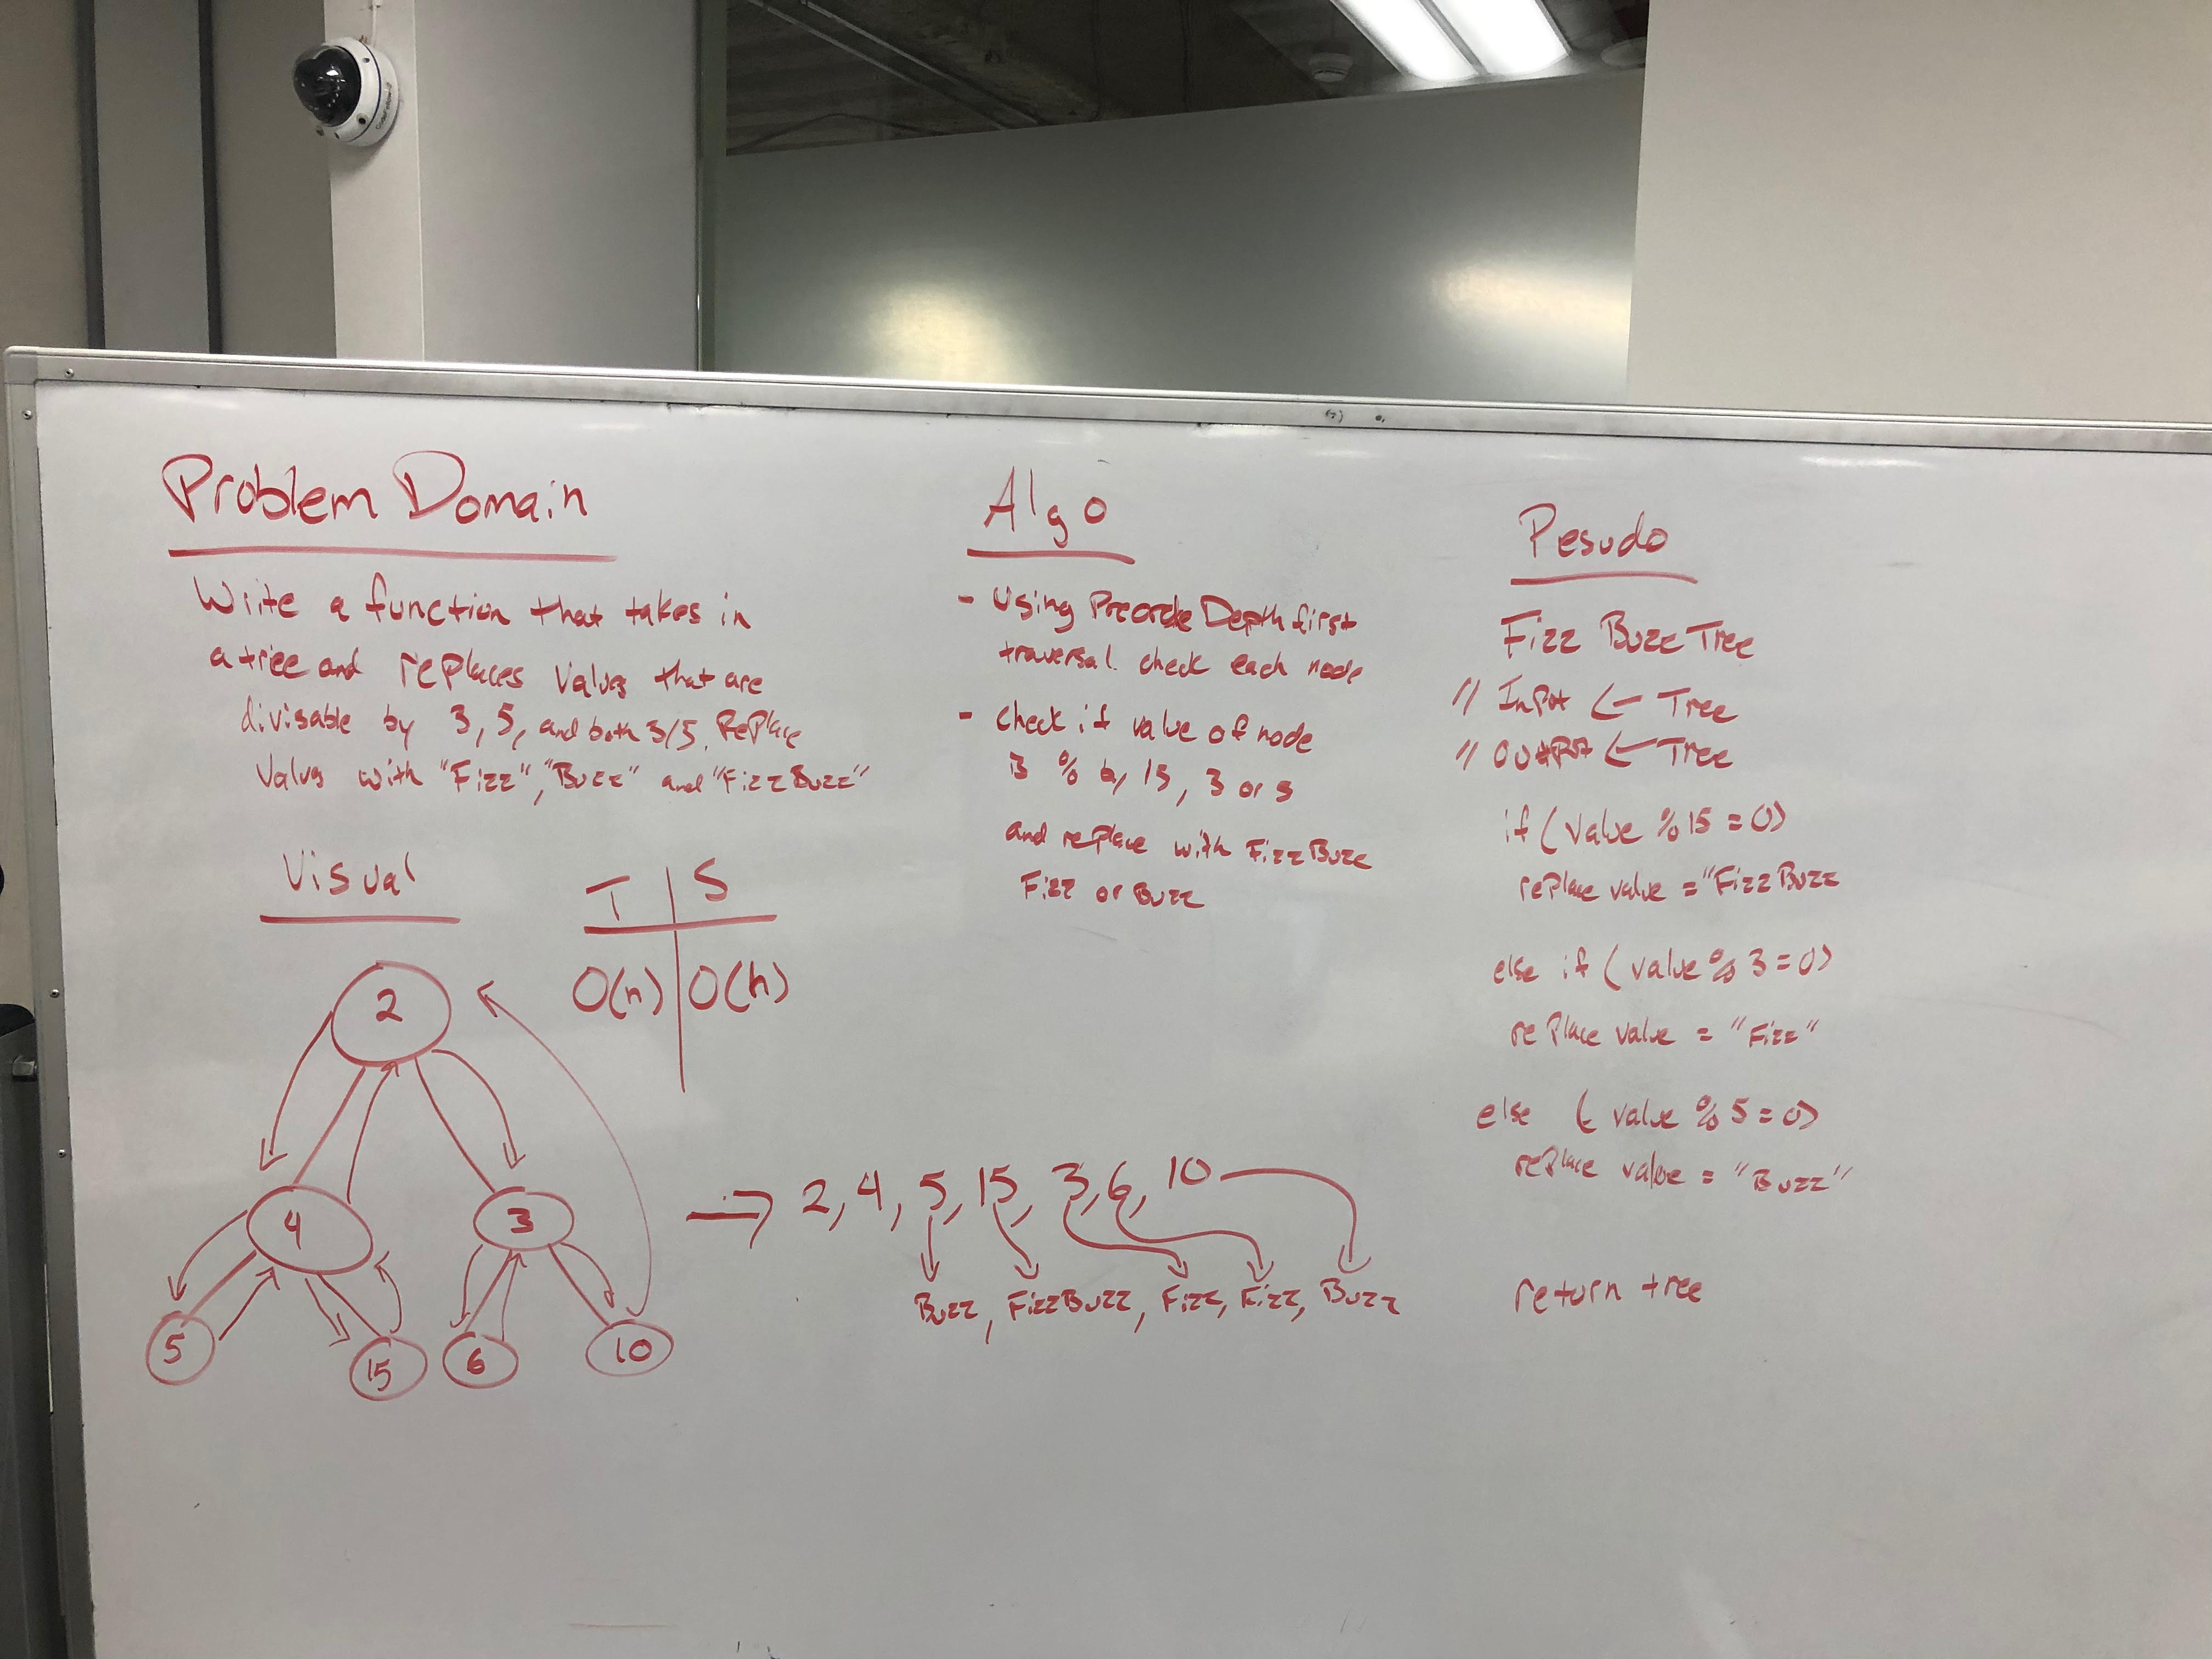 Problem Domain
Write a function that takes in
a tree and replaces values that are
divisable by 3, 5, and both 3/5. Replace
Values with "Fizz", "Buzz" and "FizzBuzz"
Visual
T | S
O(n) | O(h)
2
4
3
5
15
6
10
Algo
- Using Preorde Depth first
traversal. check each node
- check if value of node
% by 15, 3 or 5
and replace with FizzBuzz
Fizz or Buzz
→ 2, 4, 5, 15, 3, 6, 10
Buzz, FizzBuzz, Fizz, Fizz, Buzz
Pesudo
Fizz Buzz Tree
// Input ← Tree
// Output ← Tree
if (value % 15 = 0)
replace value = "FizzBuzz
else if (value % 3 = 0)
replace value = "Fizz"
else (value % 5 = 0)
replace value = "Buzz"
return tree